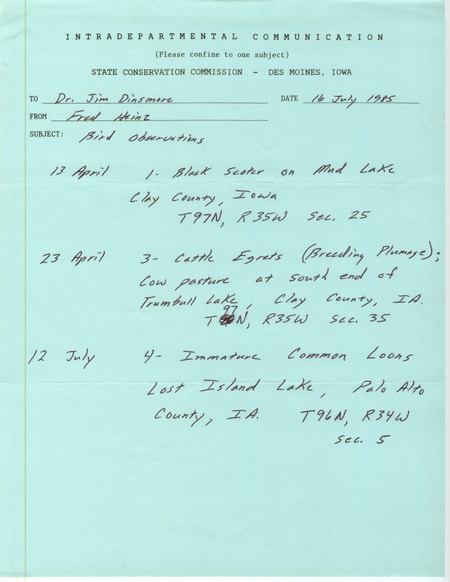 INTRADEPARTMENTAL COMMUNICATION
(Please confine to one subject)
STATE CONSERVATION COMMISSION - DES MOINES, IOWA
TO Dr. Jim Dinsmore DATE 16 July 1985
FROM Fred Heinz
SUBJECT: Bird Observations
13 April 1- Black Scoter on Mud Lake
Clay County, Iowa
T97N, R35W Sec. 25
23 April 3- Cattle Egrets (Breeding Plumage);
Cow pasture at south end of
Trumbull Lake, Clay County, IA.
T97N, R35W Sec. 35
12 July 4- Immature Common Loons
Lost Island Lake, Palo Alto
County, IA. T96N, R34W
Sec. 5